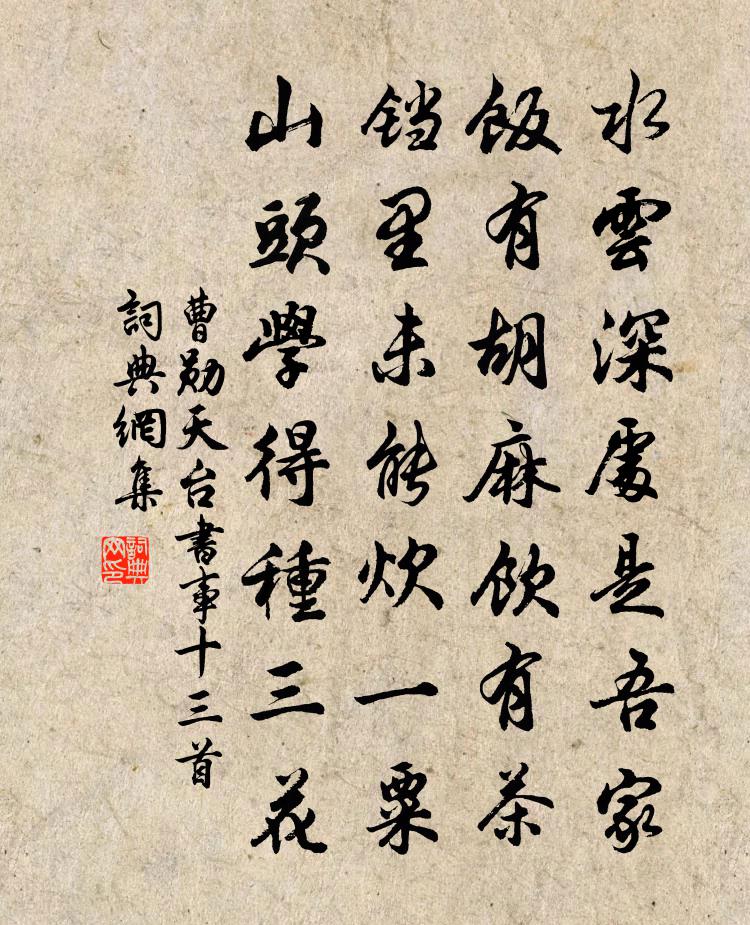 水雲深處是吾家
飯有胡麻飲有茶
铛里未能炊一粟
山頭學得種三花
曹勛天台書事十三首
詞典網集
詞典网印